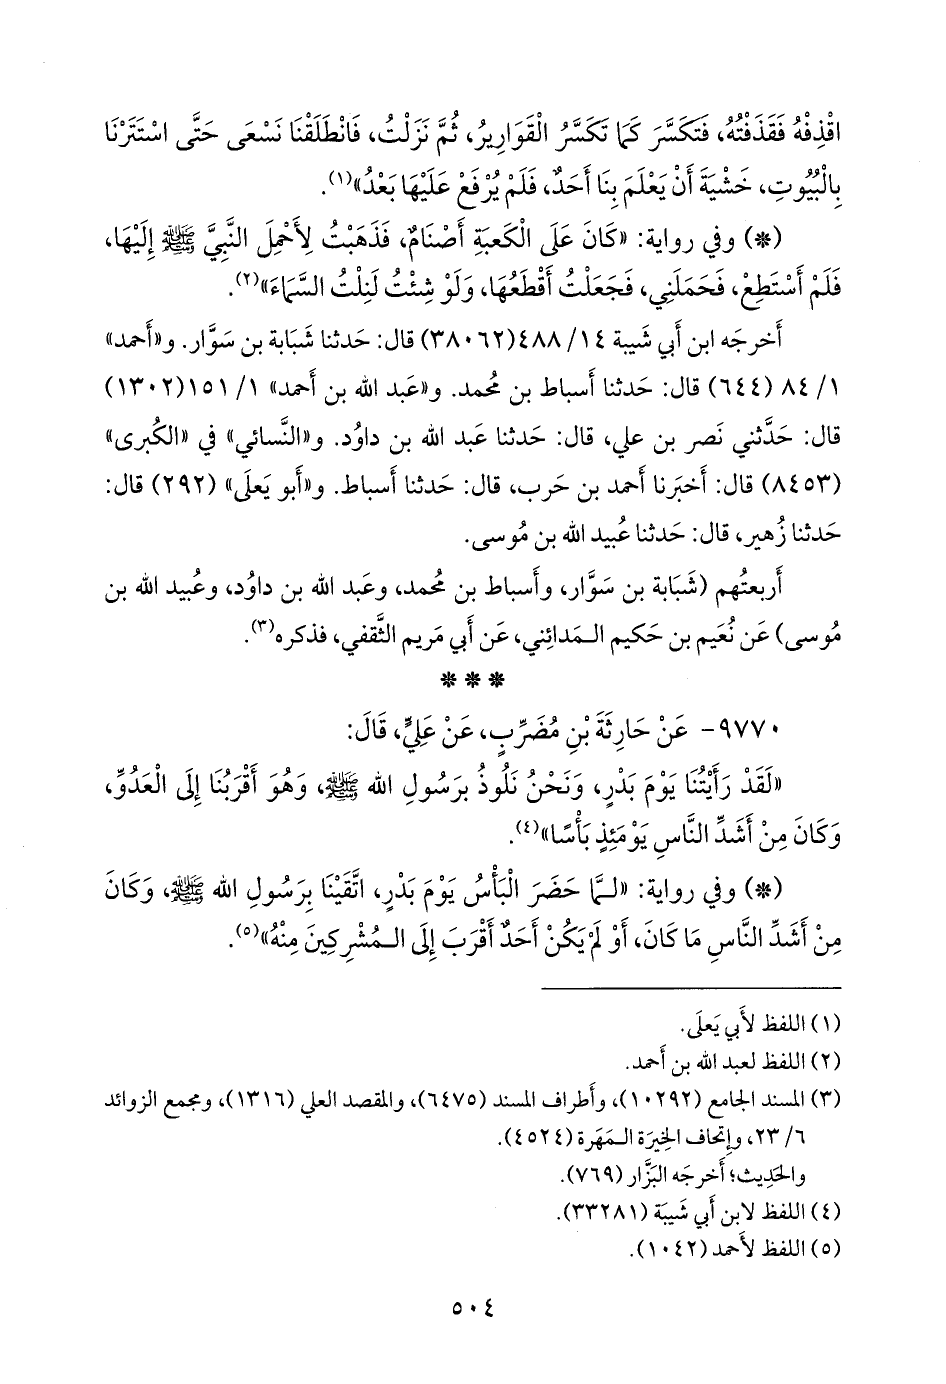 اقْذِفْهُ فَقَذَفْتُهُ، فَتَكَسَّرَ كَمَا تَكَسَّرُ الْقَوَارِيرُ، ثُمَّ نَزَلْتُ، فَانْطَلَقْنَا نَسْعَى حَتَّى اسْتَتَرْنَا
بِالْبُيُوتِ، خَشْيَةَ أَنْ يَعْلَمَ بِنَا أَحَدٌ، فَلَمْ يُرْفَعْ عَلَيْهَا بَعْدُ»(١).
(*) وفي رواية: «كَانَ عَلَى الْكَعبَةِ أَصْنَامٌ، فَذَهَبْتُ لِأَحْمِلَ النَّبِيَّ ﷺ إِلَيْهَا،
فَلَمْ أَسْتَطِعْ، فَحَمَلَنِي، فَجَعَلْتُ أَقْطَعُهَا، وَلَوْ شِئْتُ لَنِلْتُ السَّمَاءَ»(٢).
أَخرجَه ابن أَبي شَيبة ١٤/ ٤٨٨(٣٨٠٦٢) قال: حَدثنا شَبَابة بن سَوَّار. و«أَحمد»
١/ ٨٤ (٦٤٤) قال: حَدثنا أَسباط بن مُحمد. و«عَبد الله بن أَحمد» ١/ ١٥١(١٣٠٢)
قال: حَدَّثني نَصر بن علي، قال: حَدثنا عَبد الله بن داوُد. و«النَّسائي» في «الكُبرى»
(٨٤٥٣) قال: أَخبَرنا أَحمد بن حَرب، قال: حَدثنا أَسباط. و«أَبو يَعلَى» (٢٩٢) قال:
حَدثنا زُهير، قال: حَدثنا عُبيد الله بن مُوسى.
أَربعتُهم (شَبَابة بن سَوَّار، وأَسباط بن مُحمد، وعَبد الله بن داوُد، وعُبيد الله بن
مُوسى) عَن نُعَيم بن حَكيم الـمَدائِني، عَن أَبي مَريم الثَّقفي، فذكره(٣).
* * *
٩٧٧٠- عَنْ حَارِثَةَ بْنِ مُضَرِّبٍ، عَنْ عَلِيٍّ، قَالَ:
«لَقَدْ رَأَيْتُنَا يَوْمَ بَدْرٍ، وَنَحْنُ نَلُوذُ بِرَسُولِ الله ﷺ، وَهُوَ أَقْرَبُنَا إِلَى الْعَدُوِّ،
وَكَانَ مِنْ أَشَدِّ النَّاسِ يَوْمَئِذٍ بَأْسًا»(٤).
(*) وفي رواية: «لـمَّا حَضَرَ الْبَأْسُ يَوْمَ بَدْرٍ، اتَّقَيْنَا بِرَسُولِ الله ﷺ، وَكَانَ
مِنْ أَشَدِّ النَّاسِ مَا كَانَ، أَوْ لَمْ يَكُنْ أَحَدٌ أَقْرَبَ إِلَى الـمُشْرِكِينَ مِنْهُ»(٥).
(١) اللفظ لأَبي يَعلَى.
(٢) اللفظ لعبد الله بن أَحمد.
(٣) المسند الجامع (١٠٢٩٢)، وأَطراف المسند (٦٤٧٥)، والمقصد العلي (١٣١٦)، ومجمع الزوائد
٦/ ٢٣، وإِتحاف الخِيرَة الـمَهَرة (٤٥٢٤).
والحَدِيث؛ أَخرجَه البَزَّار (٧٦٩).
(٤) اللفظ لابن أَبي شَيبَة (٣٣٢٨١).
(٥) اللفظ لأَحمد (١٠٤٢).
٥٠٤